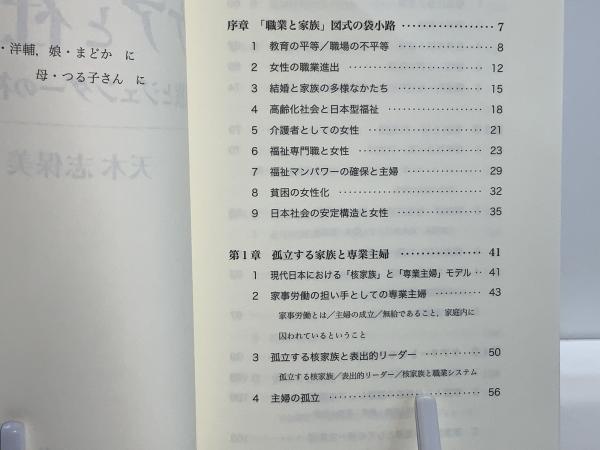 ・洋輔，娘・まどか に
母・つる子さん に
天木志保美
序章 「職業と家族」図式の袋小路 ･････････････････ 7
1 教育の平等／職場の不平等 ････････････････････ 8
2 女性の職業進出 ･･････････････････････････ 12
3 結婚と家族の多様なかたち ････････････････････ 15
4 高齢化社会と日本型福祉 ･････････････････････ 18
5 介護者としての女性 ･･･････････････････････ 21
6 福祉専門職と女性 ････････････････････････ 23
7 福祉マンパワーの確保と主婦 ･･･････････････････ 29
8 貧困の女性化 ･･････････････････････････ 32
9 日本社会の安定構造と女性 ････････････････････ 35
第1章 孤立する家族と専業主婦 ････････････････ 41
1 現代日本における「核家族」と「専業主婦」モデル ･･ 41
2 家事労働の担い手としての専業主婦 ･･････････ 43
家事労働とは／主婦の成立／無給であること，家庭内に
囚われているということ
3 孤立する核家族と表出的リーダー ････････････ 50
孤立する核家族／表出的リーダー／核家族と職業システム
4 主婦の孤立 ･･････････････････････････････ 56